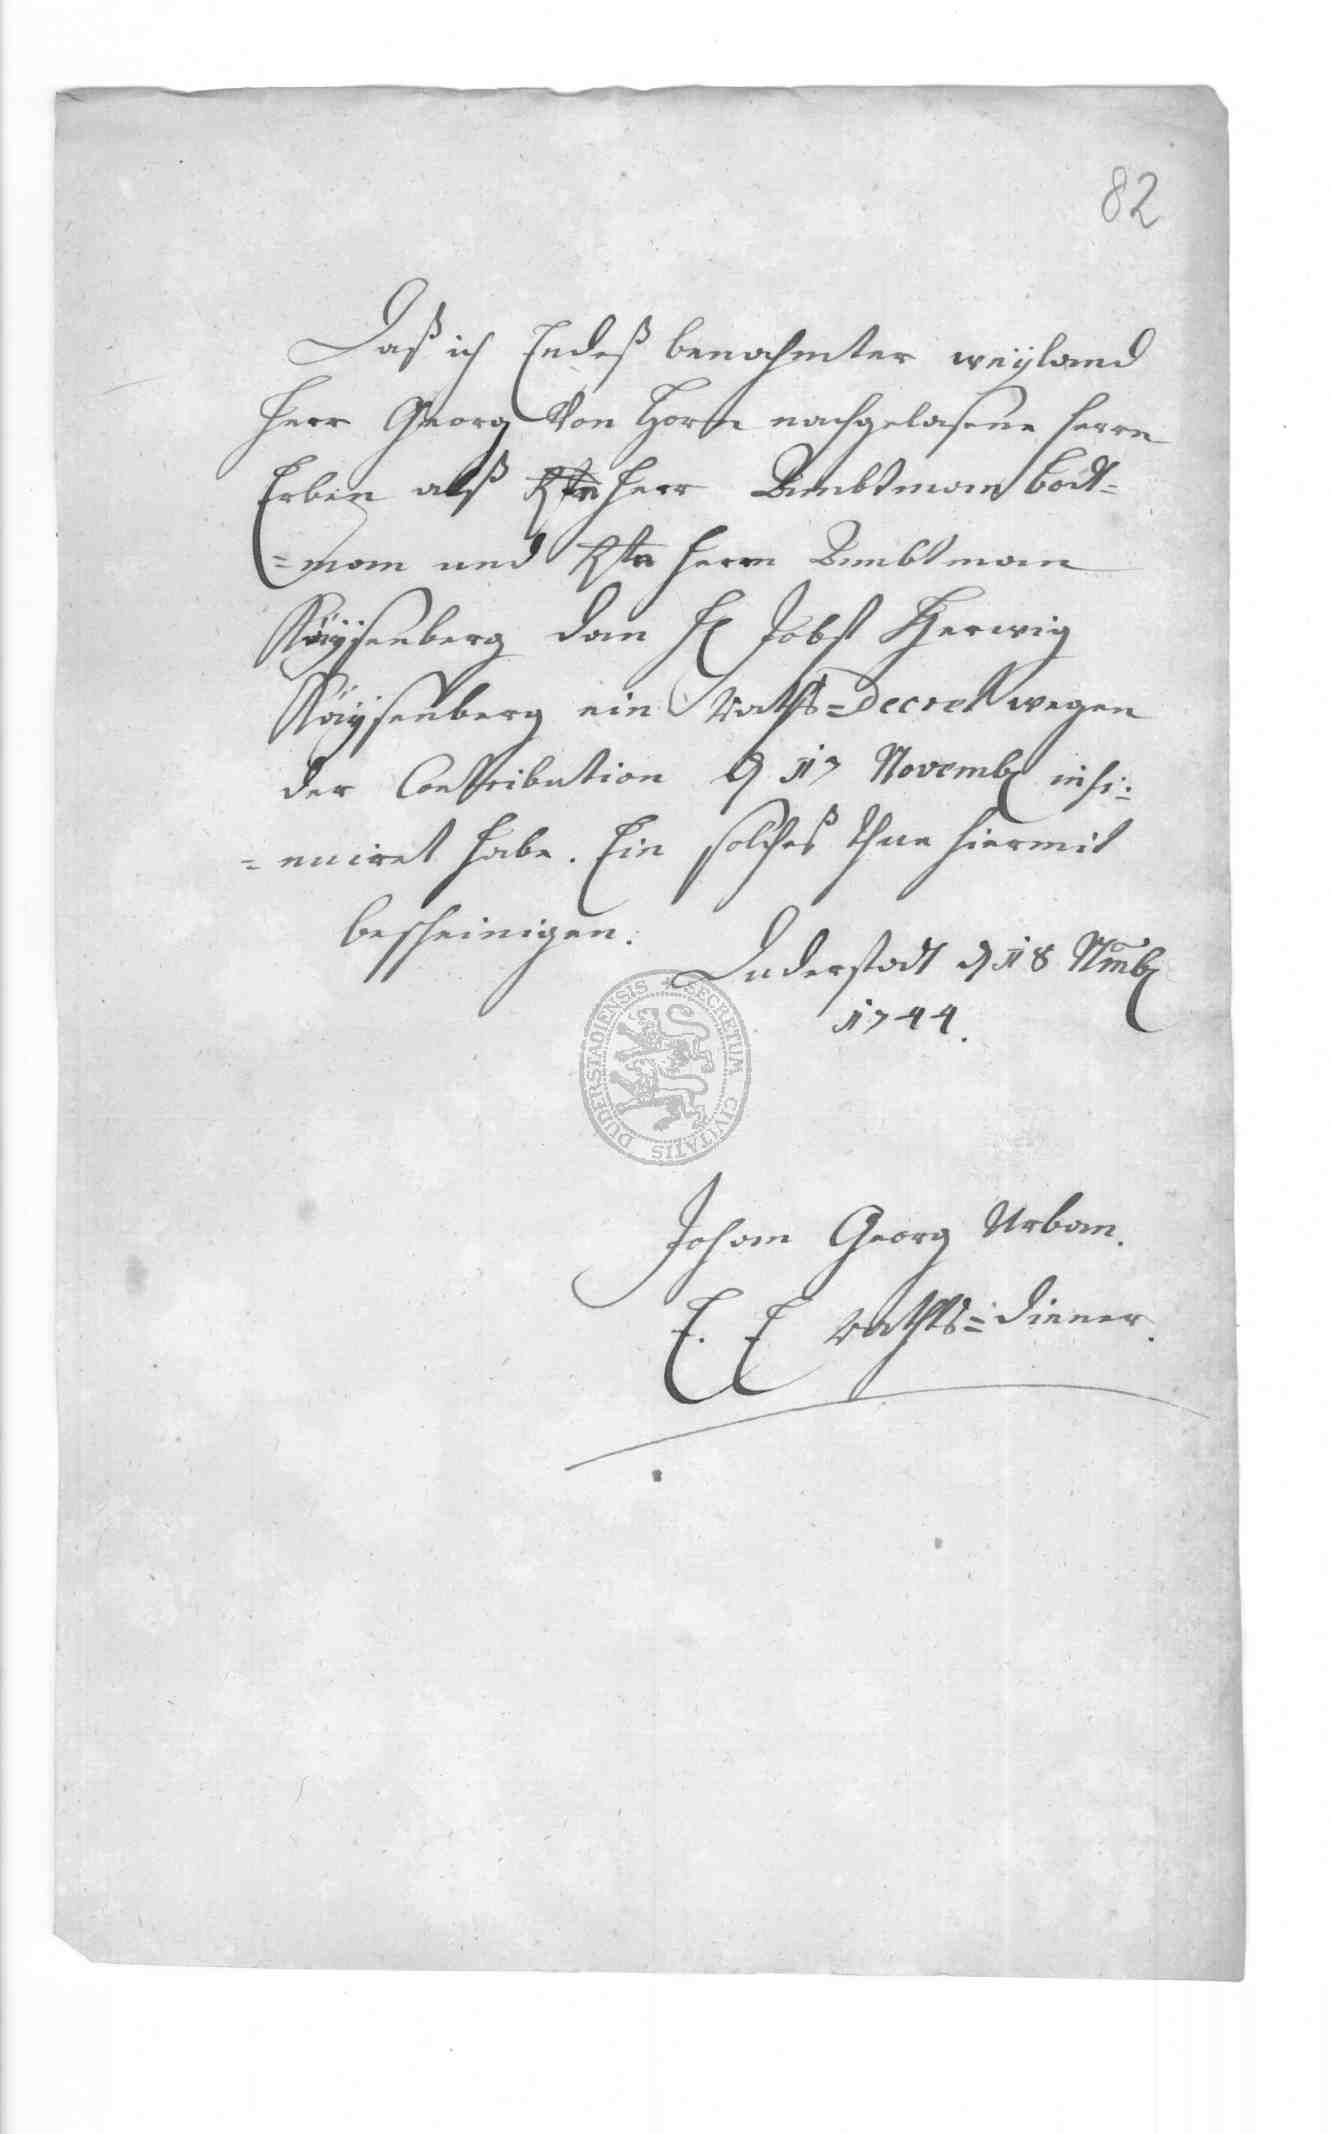 82
Daß ich Endeß benahmter weyland
Herr Georg Von Horn nachgelasene Herrn
Erben alß Herr Ambtman Bodt=
=man und Herrn Ambtman
Käysenberg dan H Jobst Herwig
Käysenberg ein Raths=Decret wegen
der Contribution d 17 Novemb insi=
=nuiret habe. Ein solcheß thue hiermit
bescheinigen.
Duderstadt d 18 Nmb
1744.
SECRETUM CIVITATIS DUDERSTADIENSIS
Johan Georg Urban.
E. E Raths=diener.